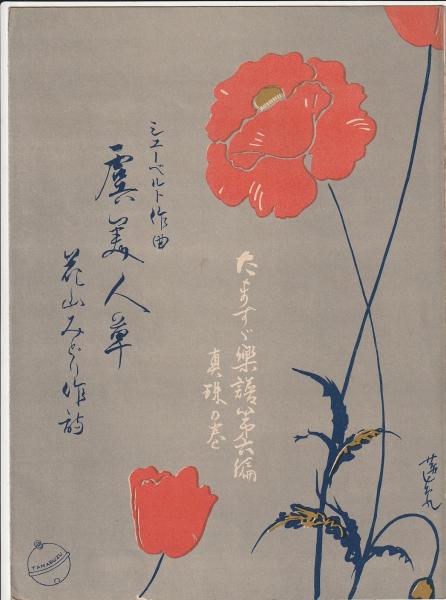 シューベルト作曲
虞美人草
花山みどり作詩
たますゞ樂譜第六編
真珠の巻
TAMASUZU